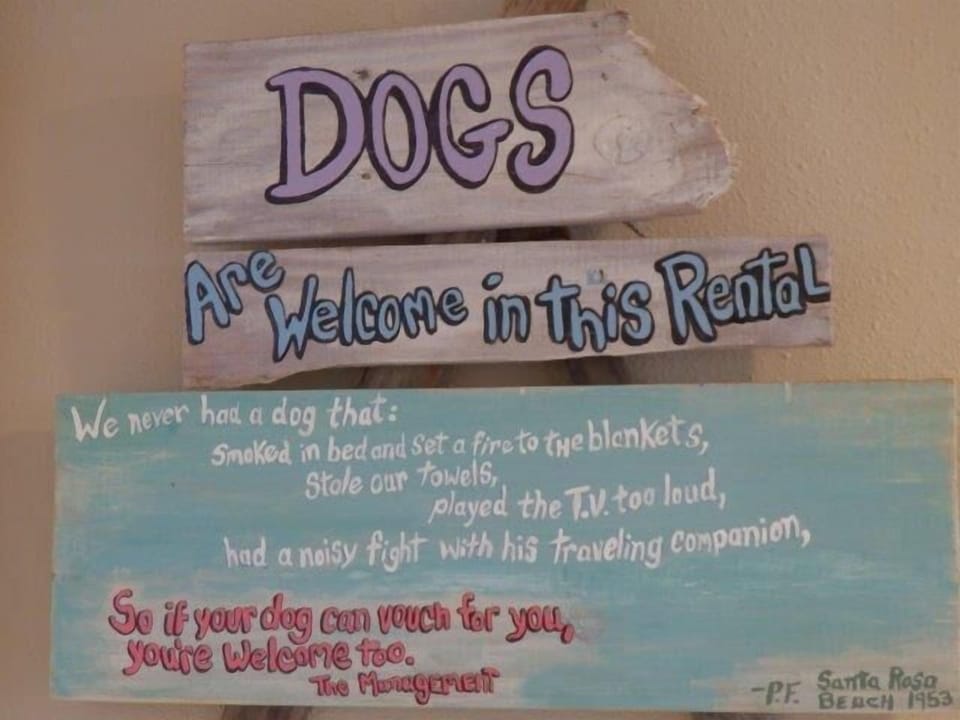 DOGS
Are Welcome in this Rental
We never had a dog that:
Smoked in bed and set a fire to the blankets,
Stole our towels,
played the T.V. too loud,
had a noisy fight with his traveling companion,
So if your dog can vouch for you,
you're Welcome too.
The Management
-P.F. Santa Rosa
BEACH 1953